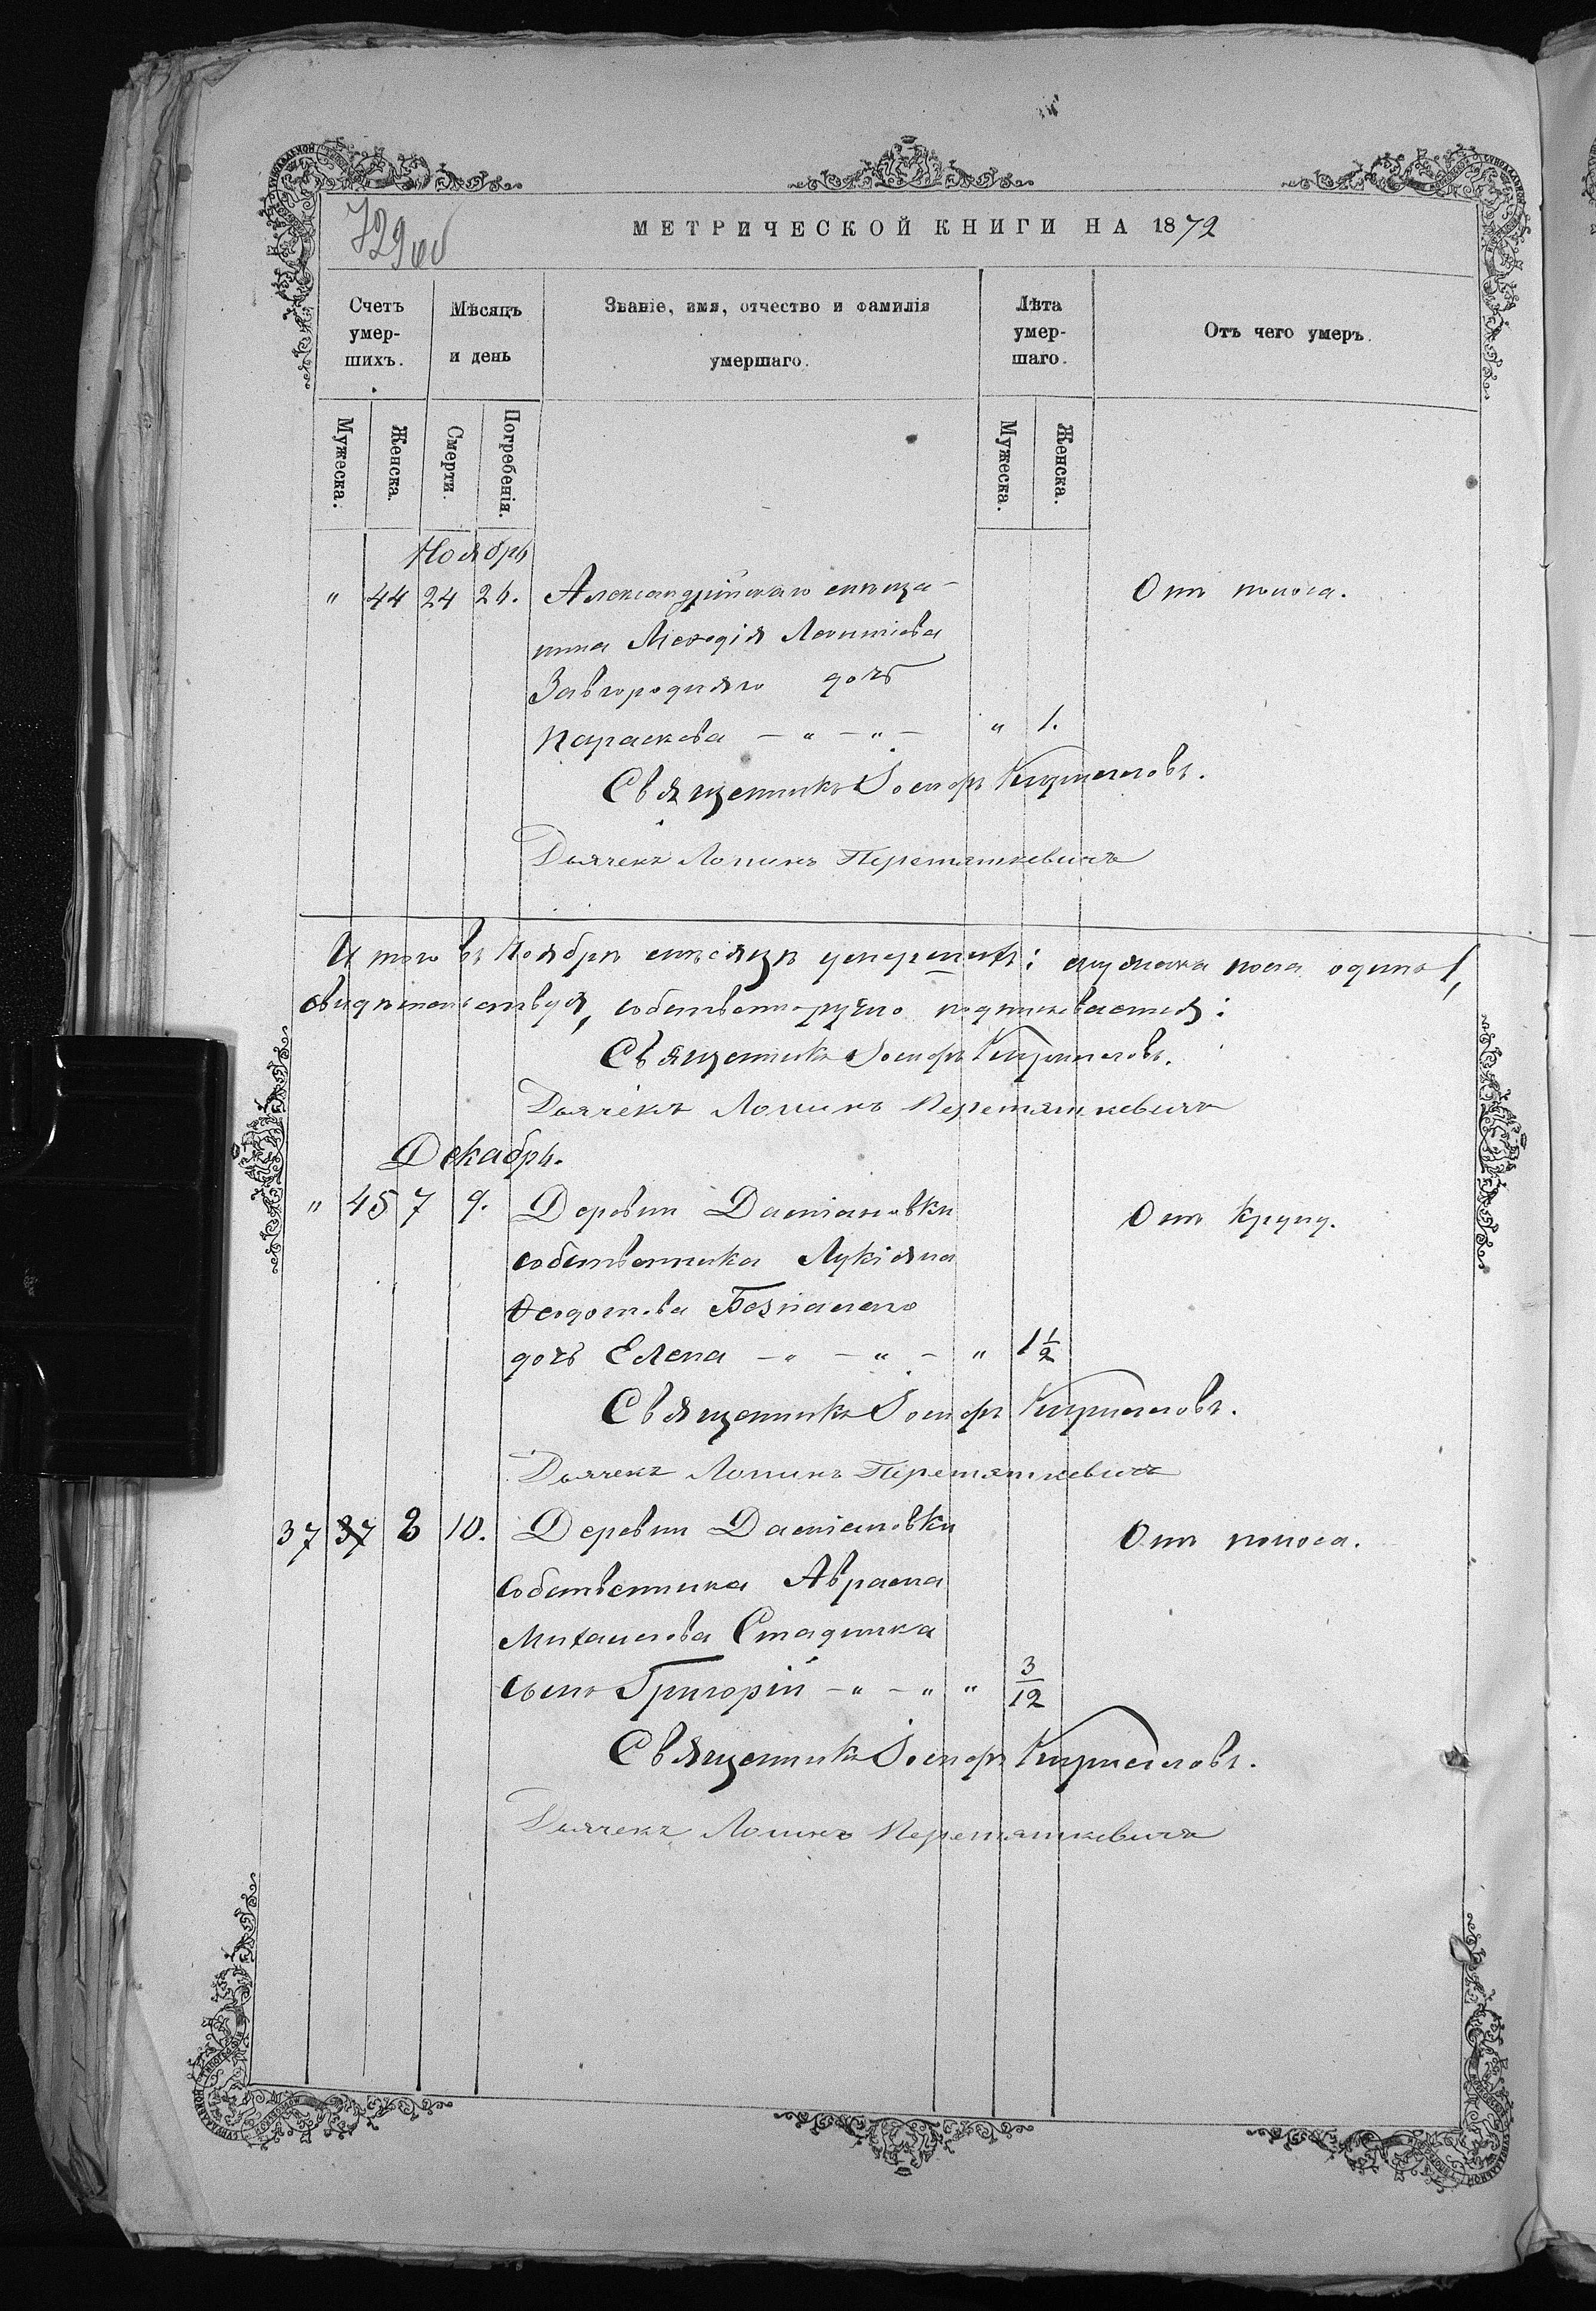 729об
МЕТРИЧЕСКОЙ КНИГИ НА 1872
Счетъ умер-шихъ. Мѣсяцъ и день Званіе, имя, отчество и фамилія умершаго. Лѣта умер-шаго. Отъ чего умеръ.
Мужеска. Женска. Смерти. Погребенія. Мужеска. Женска.
Ноябрь
" 44 24 26. Александрійскаго мѣща- Отъ поноса.
нина Меѳодія Леонтіева
Завгородняго дочь
Параскева - " - " - " 1.
Священникъ Іосифъ Кирилловъ.
Дьячекъ Логинъ Перетяткевичъ
Итого въ Ноябрѣ мѣсяцѣ умершихъ: мужеска пола одинъ 1,
свидѣтельствуя, собственноручно подписываемся:
Священникъ Іосифъ Кирилловъ.
Дьячекъ Логинъ Перетяткевичъ
Декабрь.
" 45 7 9. Деревни Даміановки Отъ крупу.
собственника Лукіяна
Ѳеодотова Безпалаго
дочь Елена - " - " - " 1 1/2
Священникъ Іосифъ Кирилловъ.
Дьячекъ Логинъ Перетяткевичъ
37 37 8 10. Деревни Даміановки Отъ поноса.
Собственника Аврама
Михаилова Стадника
сынъ Григорій - " - " " 3/12
Священникъ Іосифъ Кирилловъ.
Дьячекъ Логинъ Перетяткевичъ